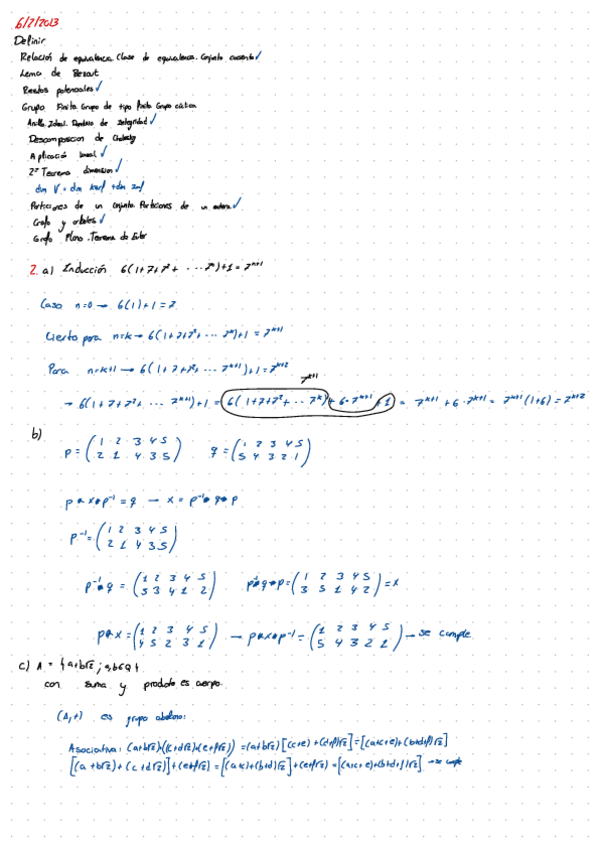 6/2/2013
Definir
Relación de equivalencia. Clase de equivalencia. Conjunto cociente ✓
Lema de Bezout
Restos potenciales ✓
Grupo Finito. Grupo de tipo finito. Grupo cíclico
Anillo. Ideal. Dominio de Integridad ✓
Descomposicion de Cholesky
Aplicación lineal ✓
2º Teorema dimension ✓
dim V = dim kerf + dim Imf
Particiones de un conjunto. Particiones de un entero. ✓
Grafo y arboles ✓
Grafo Plano. Teorema de Euler
2. a) Inducción 6(1+7+7²+ ... 7ⁿ)+1 = 7ⁿ⁺¹
Caso n=0 → 6(1)+1=7
Cierto para n=k → 6(1+7+7²+ ... 7ᵏ)+1 = 7ᵏ⁺¹
Para n=k+1 → 6(1+7+7²+ ... 7ᵏ⁺¹)+1 = 7ᵏ⁺²
7ᵏ⁺¹
→ 6(1+7+7²+ ... 7ᵏ⁺¹)+1 = 6(1+7+7²+ ... 7ᵏ)+6·7ᵏ⁺¹+1 = 7ᵏ⁺¹+6·7ᵏ⁺¹ = 7ᵏ⁺¹(1+6) = 7ᵏ⁺²
b)
p = (1 2 3 4 5 / 2 1 4 3 5) q = (1 2 3 4 5 / 5 4 3 2 1)
p*x*p⁻¹ = q → x = p⁻¹*q*p
p⁻¹ = (1 2 3 4 5 / 2 1 4 3 5)
p⁻¹*q = (1 2 3 4 5 / 5 3 4 1 2) p⁻¹*q*p = (1 2 3 4 5 / 3 5 1 4 2) = x
p*x = (1 2 3 4 5 / 4 5 2 3 1) → p*x*p⁻¹ = (1 2 3 4 5 / 5 4 3 2 1) → se cumple
c) A = {a+b√2 ; a,b∈Q}
con suma y producto es cuerpo.
(A,+) es grupo abeliano:
Asociativa: (a+b√2)+((c+d√2)+(e+f√2)) = (a+b√2)+[(c+e)+(d+f)√2] = [(a+c+e)+(b+d+f)√2]
[(a+b√2)+(c+d√2)]+(e+f√2) = [(a+c)+(b+d)√2]+(e+f√2) = [(a+c+e)+(b+d+f)√2] → se cumple